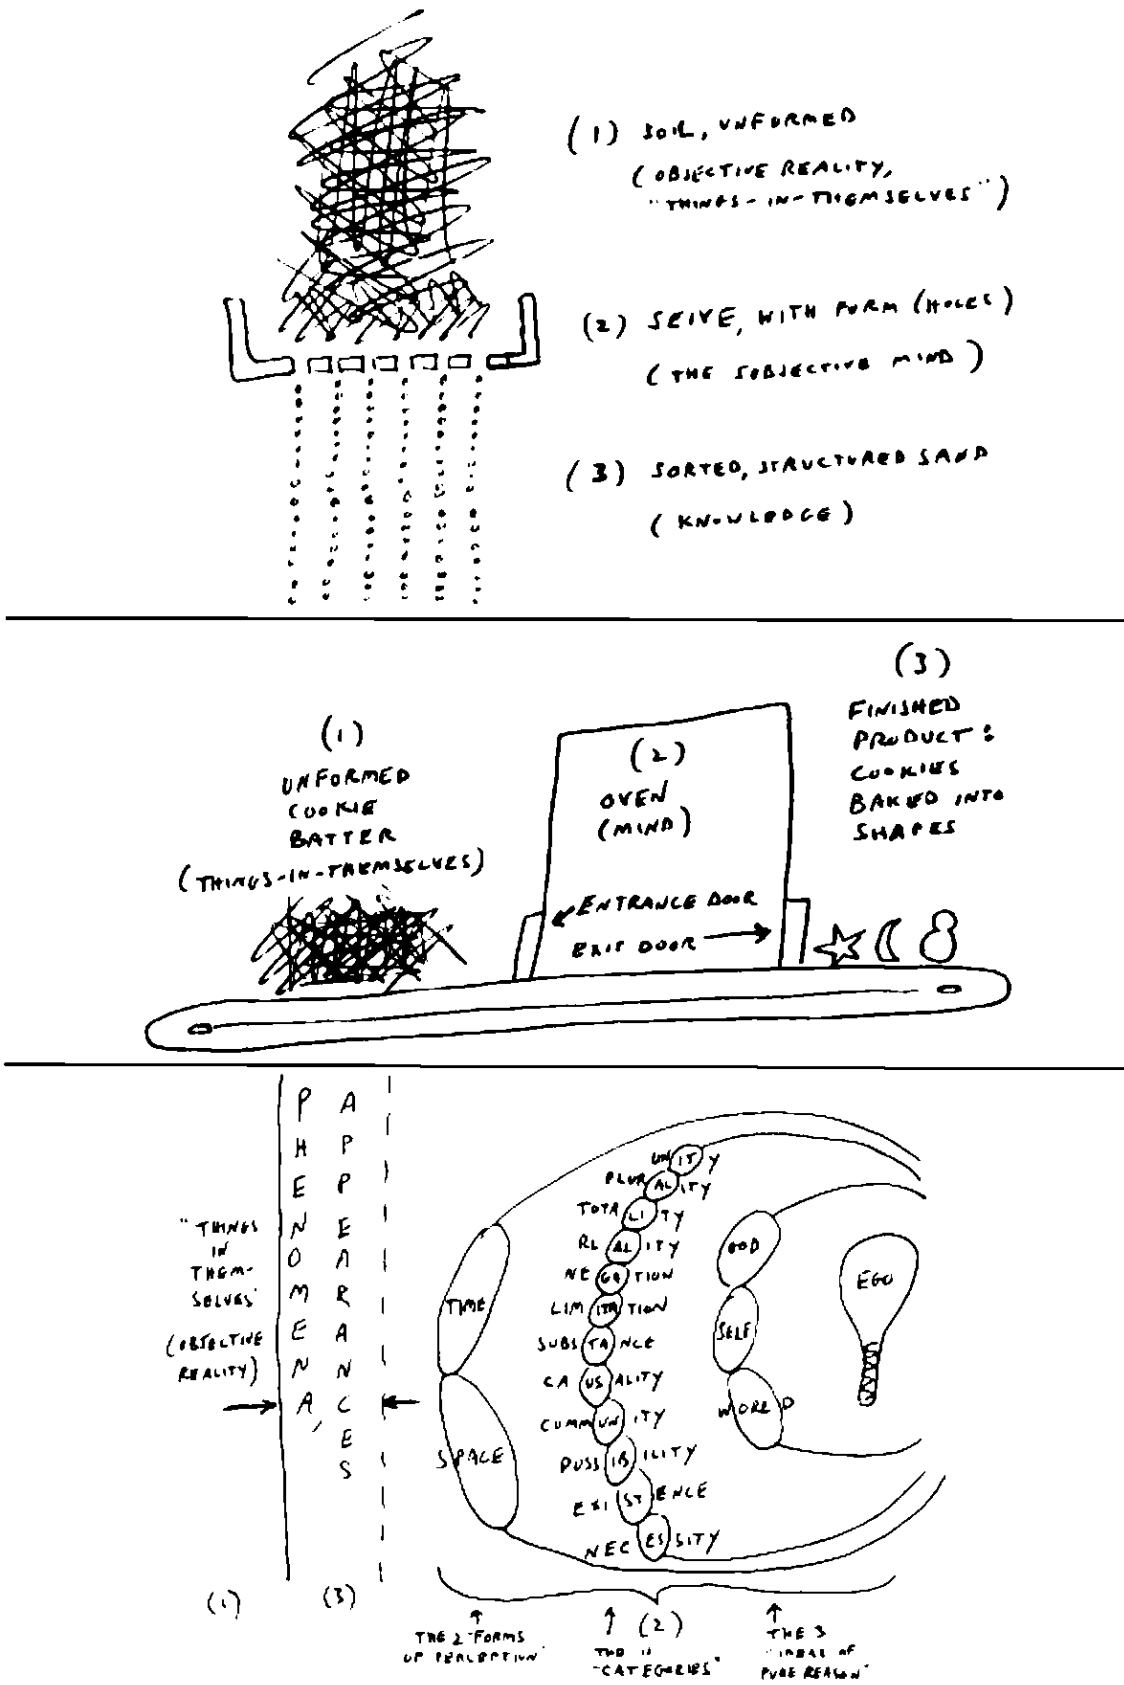 (1) SOIL, UNFORMED
(OBJECTIVE REALITY,
"THINGS-IN-THEMSELVES")
(2) SEIVE, WITH FORM (HOLES)
(THE SUBJECTIVE MIND)
(3) SORTED, STRUCTURED SAND
(KNOWLEDGE)
(1)
UNFORMED
COOKIE
BATTER
(THINGS-IN-THEMSELVES)
(2)
OVEN
(MIND)
ENTRANCE DOOR
EXIT DOOR
(3)
FINISHED
PRODUCT:
COOKIES
BAKED INTO
SHAPES
"THINGS
IN
THEM-
SELVES"
(OBJECTIVE
REALITY)
PHENOMENA,
APPEARANCES
TIME
SPACE
UNITY
PLURALITY
TOTALITY
REALITY
NEGATION
LIMITATION
SUBSTANCE
CAUSALITY
COMMUNITY
POSSIBILITY
EXISTENCE
NECESSITY
GOD
SELF
WORLD
EGO
(1)
(3)
(2)
THE 2 "FORMS
OF PERCEPTION"
THE 12
"CATEGORIES"
THE 3
"IDEAS OF
PURE REASON"